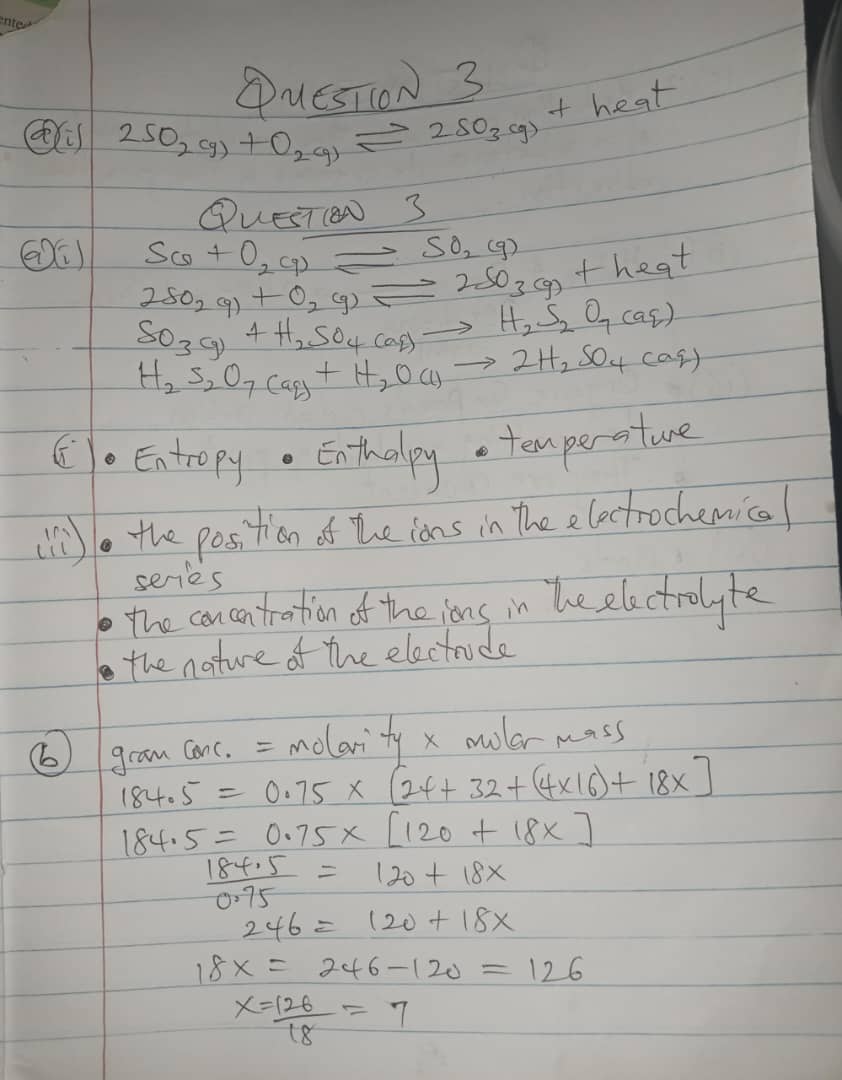 QUESTION 3
a)i) 2SO₂(g) + O₂(g) ⇌ 2SO₃(g) + heat
QUESTION 3
a)i) S(s) + O₂(g) ⇌ SO₂(g)
2SO₂(g) + O₂(g) ⇌ 2SO₃(g) + heat
SO₃(g) + H₂SO₄(aq) → H₂S₂O₇(aq)
H₂S₂O₇(aq) + H₂O(l) → 2H₂SO₄(aq)
ii) • Entropy • Enthalpy • temperature
iii) • the position of the ions in the electrochemical
series
• the concentration of the ions in the electrolyte
• the nature of the electrode
(b) gram conc. = molarity x molar mass
184.5 = 0.75 x [24+ 32+(4x16)+ 18x]
184.5 = 0.75 x [120 + 18x]
184.5/0.75 = 120 + 18x
246 = 120 + 18x
18x = 246-120 = 126
x=126/18 = 7